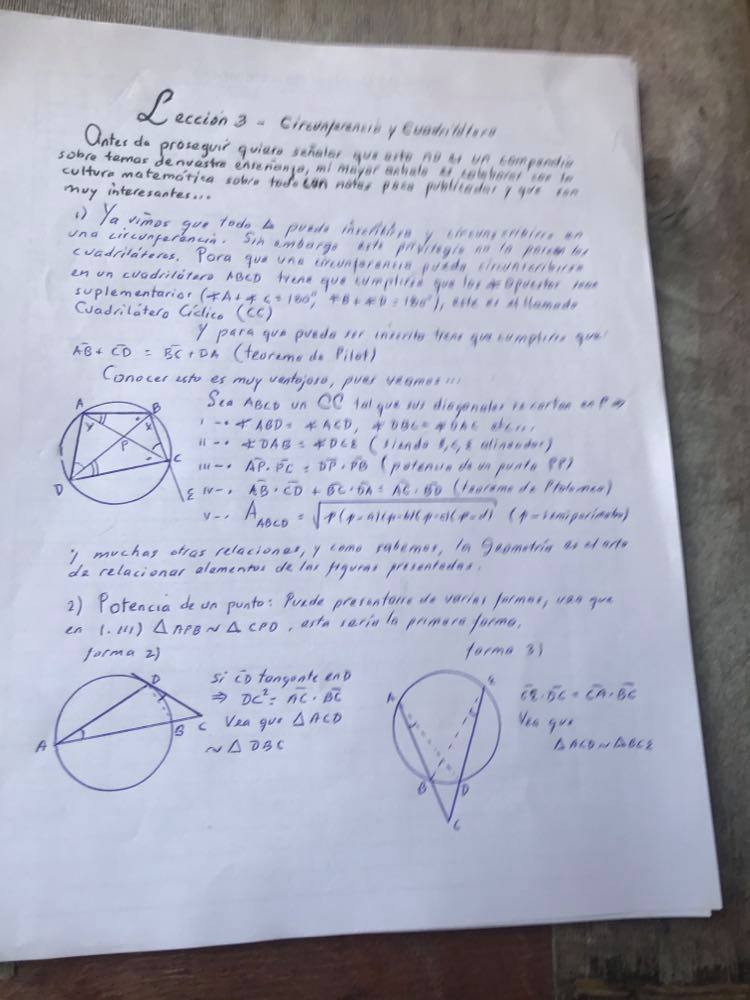 Lección 3 - Circunferencia y Cuadrilátero
Antes de proseguir quiero señalar que esto no es un compendio
sobre temas de nuestra enseñanza, mi mayor anhelo es colaborar con la
cultura matemática sobre todo con notas poco publicadas y que son
muy interesantes...
1) Ya vimos que todo Δ puede inscribirse y circunscribirse en
una circunferencia. Sin embargo este privilegio no lo poseen los
cuadriláteros. Para que una circunferencia pueda circunscribirse
en un cuadrilátero ABCD tiene que cumplirse que los ∢ opuestos sean
suplementarios (∢A+∢C=180°, ∢B+∢D=180°), este es el llamado
Cuadrilátero Cíclico (CC)
Y para que pueda ser inscrita tiene que cumplirse que:
AB + CD = BC + DA (teorema de Pitot)
Conocer esto es muy ventajoso, pues veamos...
Sea ABCD un CC tal que sus diagonales se cortan en P ⇒
i-. ∢ABD = ∢ACD, ∢DBC = ∢DAC etc...
ii-. ∢DAB = ∢DCE (siendo B, C, E alineados)
iii-. AP·PC = DP·PB (potencia de un punto PP)
iv-. AB·CD + BC·DA = AC·BD (teorema de Ptolomeo)
v-. A ABCD = √(p-a)(p-b)(p-c)(p-d) (p=semiperímetro)
A B P C D E x y
y muchas otras relaciones, y como sabemos, la Geometría es el arte
de relacionar elementos de las figuras presentadas.
2) Potencia de un punto: Puede presentarse de varias formas, vea que
en 1.iii) Δ APB ~ Δ CPD, esta sería la primera forma.
forma 2)
Si CD tangente en D
⇒ DC² = AC · BC
Vea que Δ ACD
~ Δ DBC
A D B C
forma 3)
CE·DC = CA·BC
Vea que
Δ ACD ~ Δ BCE
A E B D C